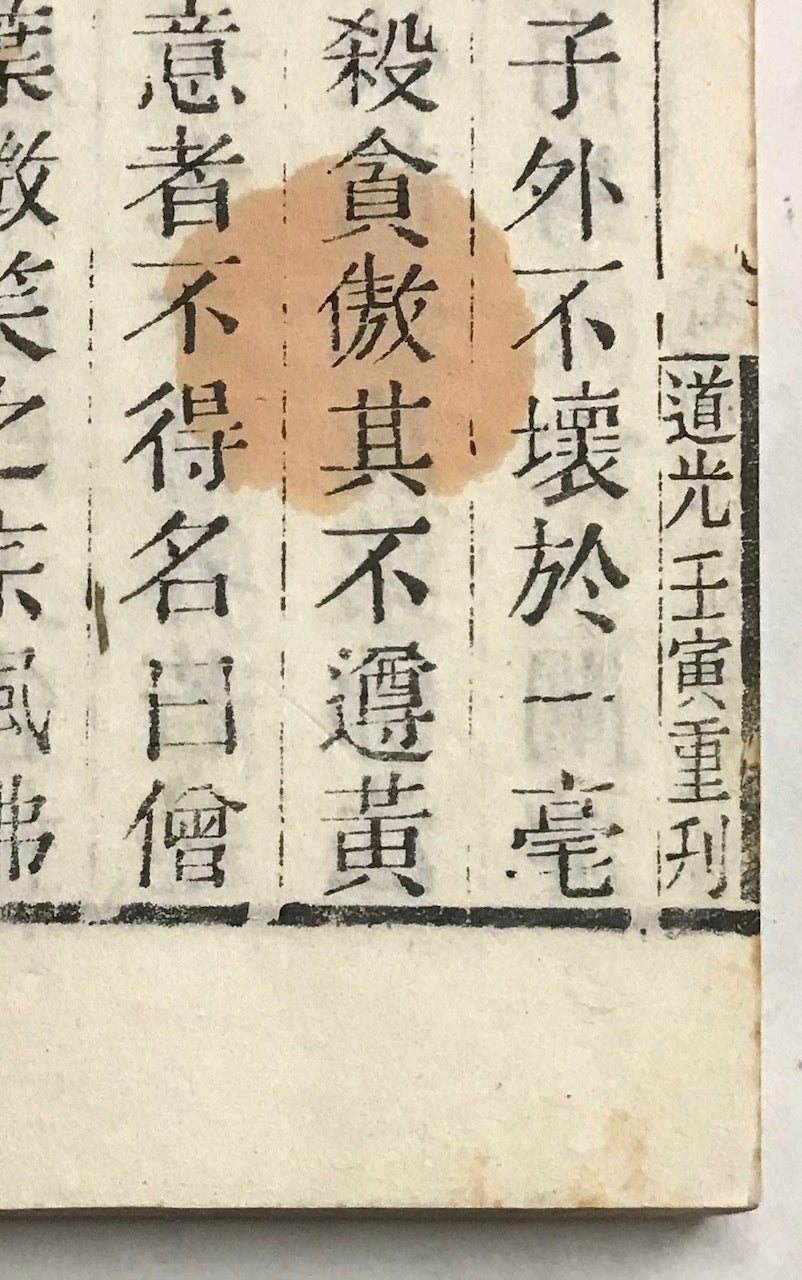 道光壬寅重刋
子外不壞於一毫
殺貪傲其不遵黃
意者不得名曰僧
葉微笑之宗風